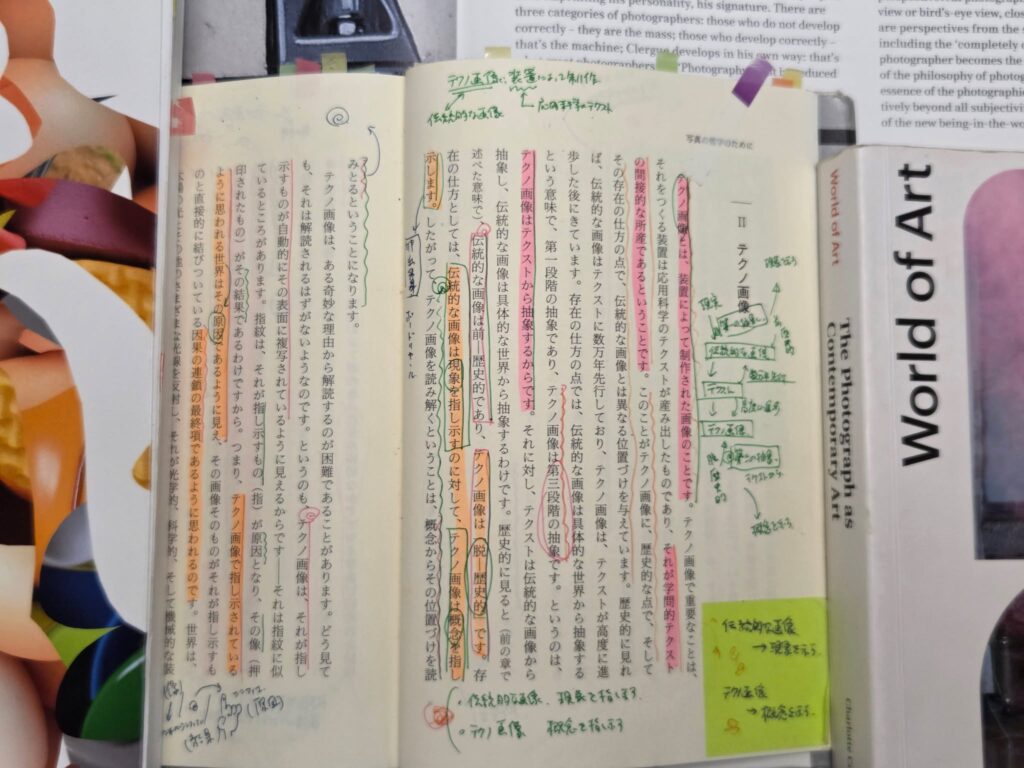 three categories of photographers: those who do not develop
correctly – they are the mass; those who develop correctly –
that's the machine; Clergue develops in his own way: that's
view or bird's-eye view,
are perspectives from the
including the 'completely
photographer becomes the
of the philosophy of
essence of the photographic
tively beyond all
of the new being-in-the-
写真の哲学のために
テクノ画像は、装置によって制作
伝統的な画像
応用科学のテクスト
Ⅱ テクノ画像
テクノ画像とは、装置によって制作された画像のことです。テクノ画像で重要なことは、
それをつくる装置は応用科学のテクストが産み出したものであり、それが学問的テクスト
の間接的な所産であるということです。このことがテクノ画像に、歴史的な点で、そして
その存在の仕方の点で、伝統的な画像とは異なる位置づけを与えています。歴史的に見れ
ば、伝統的な画像はテクストに数万年先行しており、テクノ画像は、テクストが高度に進
歩した後にきています。存在の仕方の点では、伝統的な画像は具体的な世界から抽象する
という意味で、第一段階の抽象であり、テクノ画像は第三段階の抽象です。というのは、
テクノ画像はテクストから抽象するからです。それに対し、テクストは伝統的な画像から
抽象し、伝統的な画像は具体的な世界から抽象するわけです。歴史的に見ると(前の章で
述べた意味で)、伝統的な画像は前―歴史的であり、テクノ画像は〈脱―歴史的〉です。存
在の仕方としては、伝統的な画像は現象を指し示すのに対して、テクノ画像は概念を指し
示します。したがって、テクノ画像を読み解くということは、概念からその位置づけを読
みとるということになります。
テクノ画像は、ある奇妙な理由から解読するのが困難であることがあります。どう見て
も、それは解読されるはずがないようなのです。というのも、テクノ画像は、それが指し
示すものが自動的にその表面に複写されているように見えるからです――それは指紋に似
ているところがあります。指紋は、それが指し示すもの(指)が原因となり、その像(押
印されたもの)がその結果であるわけですから。つまり、テクノ画像で指し示されている
ように思われる世界はその原因であるように見え、その画像そのものがそれが指し示すも
のと直接的に結びついている因果の連鎖の最終項であるように思われるのです。世界は、
伝統的な画像
テクスト
テクノ画像
概念を示す
・伝統的な画像 現象を指します
・テクノ画像 概念を指します
伝統的な画像
→現象を示す。
テクノ画像
→概念を示す。
World of Art
The Photograph as
Contemporary Art
World of Art